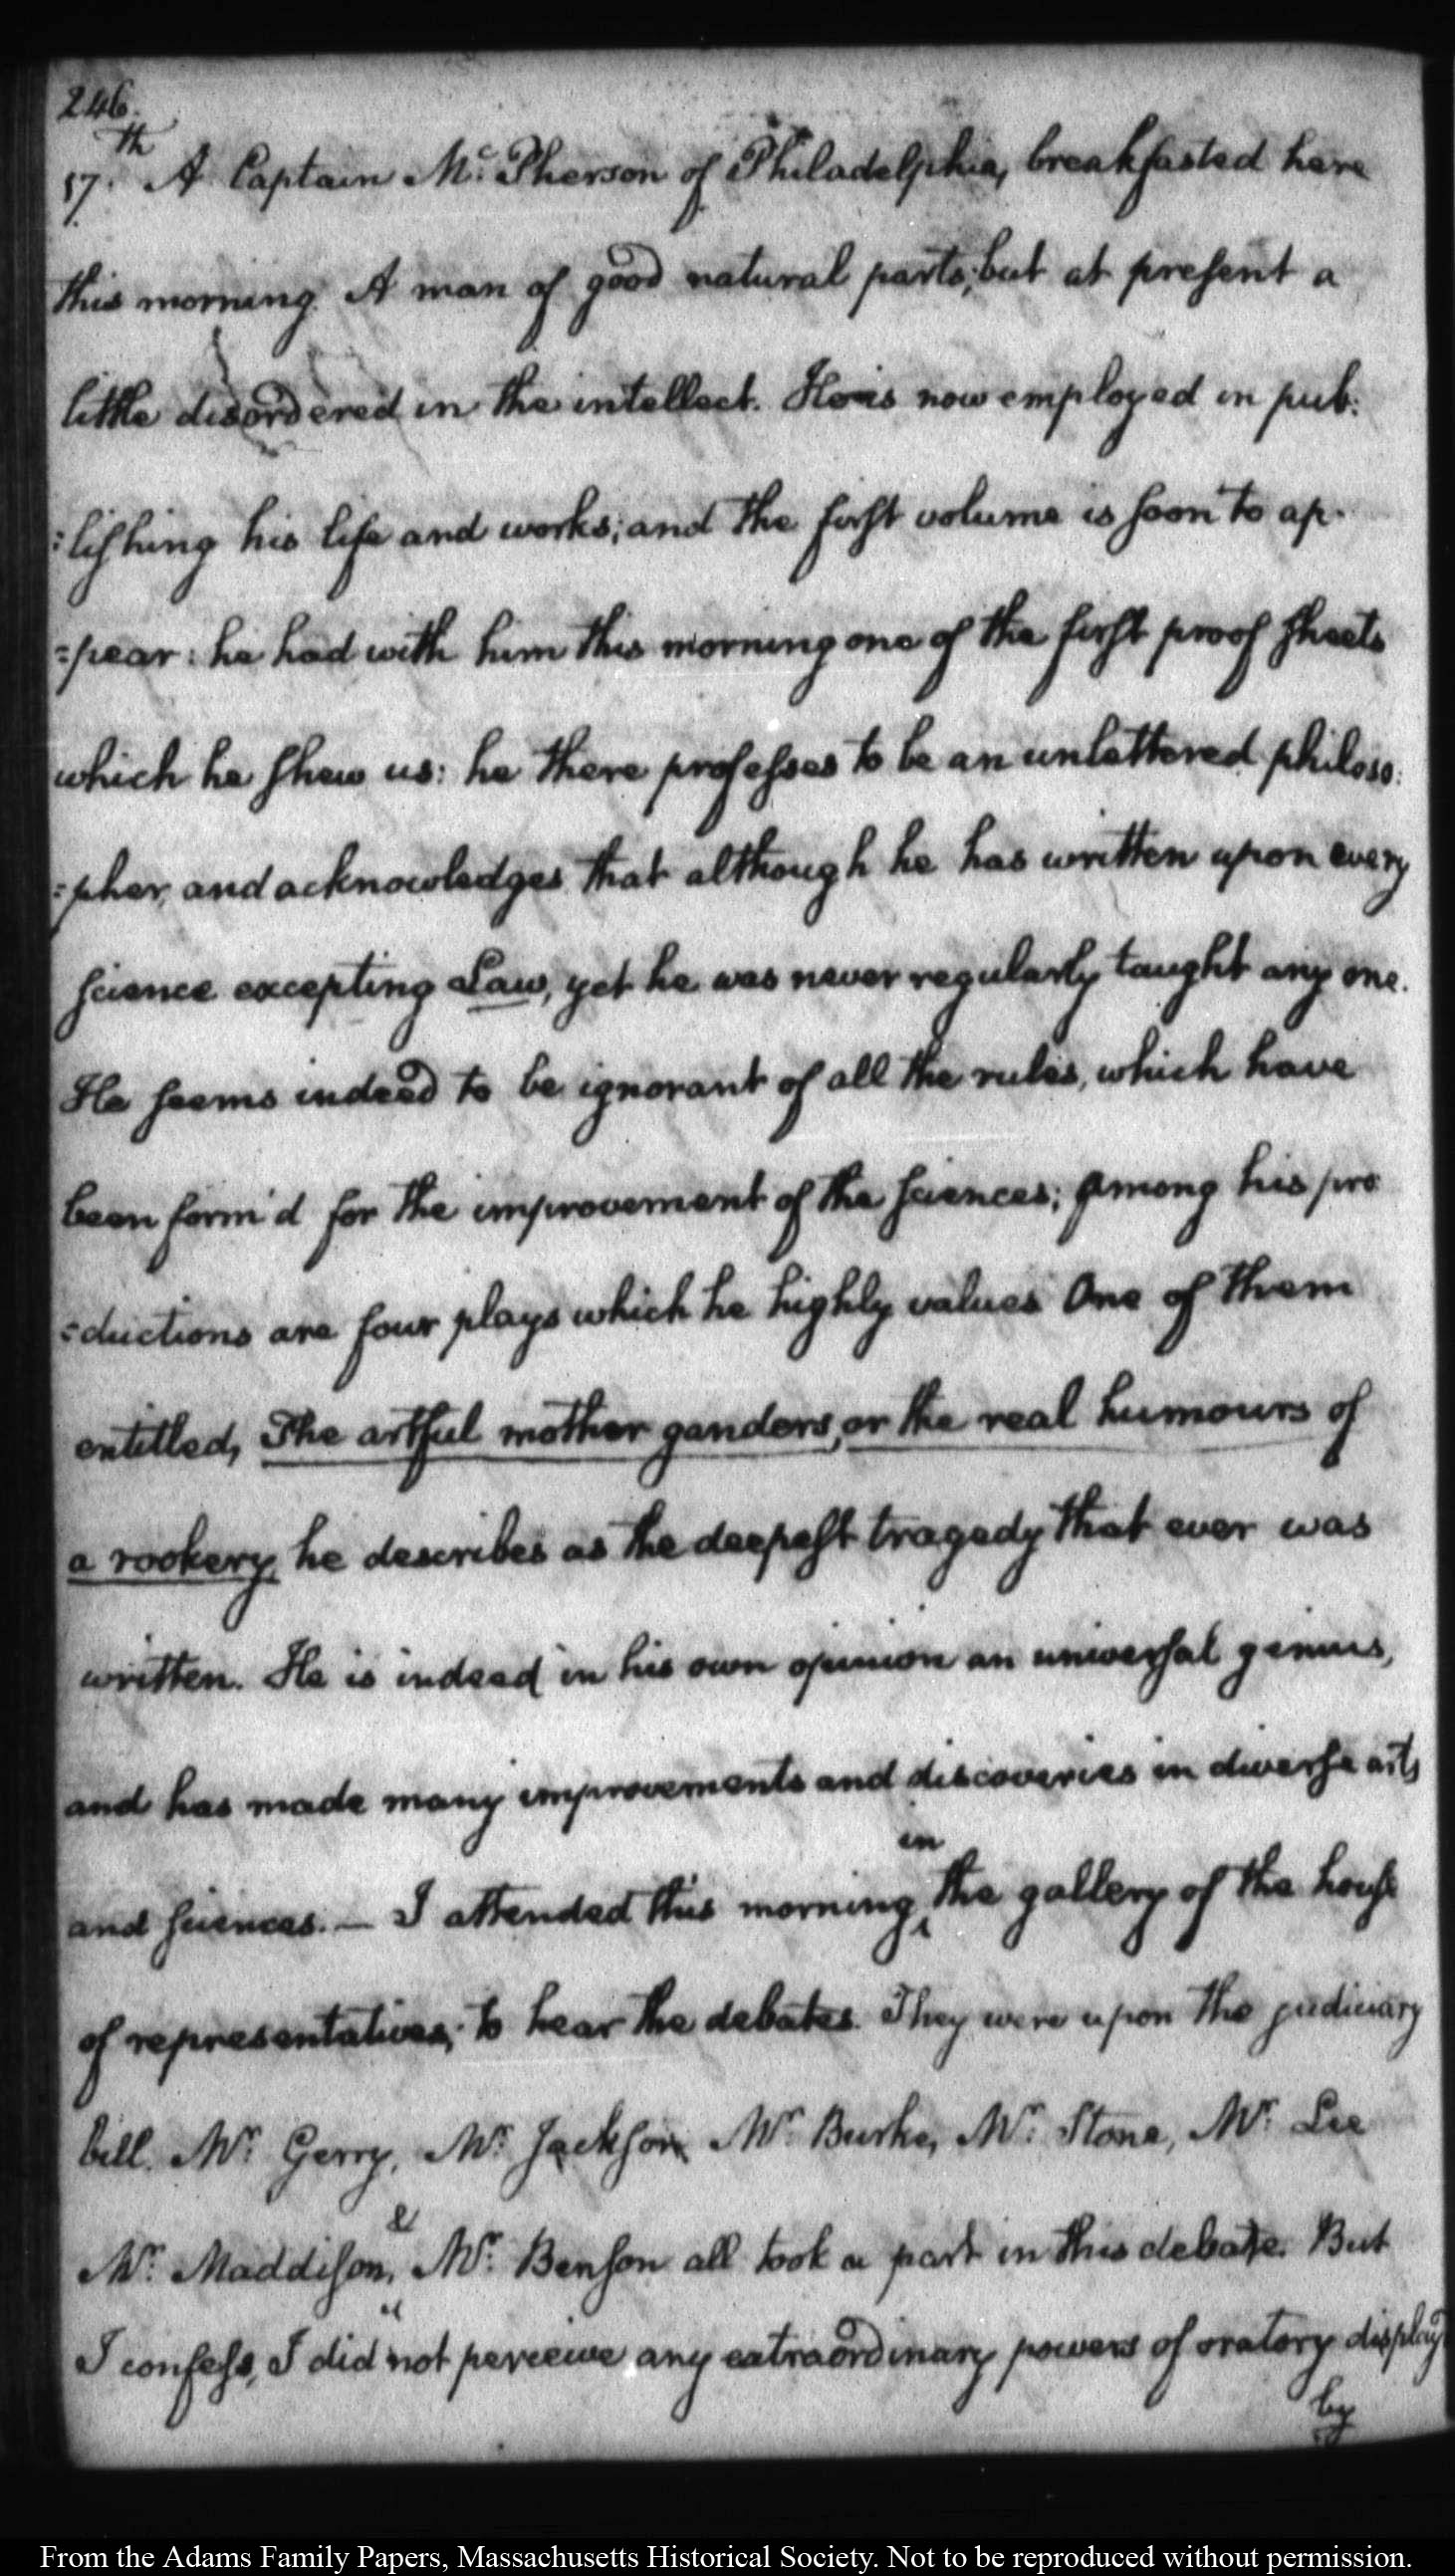 246.
17.th A Captain Mc. Pherson of Philadelphia, breakfasted here
this morning. A man of good natural parts; but at present a
little disordered in the intellect. He is now employed in pub:
:lishing his life and works; and the first volume is soon to ap-
=pear: he had with him this morning one of the first proof sheets
which he shew us: he there professes to be an unlettered philoso:
:pher, and acknowledges that although he has written upon every
science excepting Law, yet he was never regularly taught any one.
He seems indeed to be ignorant of all the rules, which have
been form'd for the improvement of the sciences; among his pro
=ductions are four plays which he highly values One of them
entitled, The artful mother ganders, or the real humours of
a rookery, he describes as the deepest tragedy that ever was
written. He is indeed in his own opinion an universal genius,
and has made many improvements and discoveries in diverse arts
and sciences. — I attended this morning in the gallery of the house
of representatives, to hear the debates. They were upon the judiciary
bill. Mr. Gerry, Mr. Jackson Mr. Burke, Mr. Stone, Mr. Lee
Mr. Maddison, & Mr. Benson all took a part in this debate. But
I confess, I did not perceive any extraordinary powers of oratory display'd
by
From the Adams Family Papers, Massachusetts Historical Society. Not to be reproduced without permission.